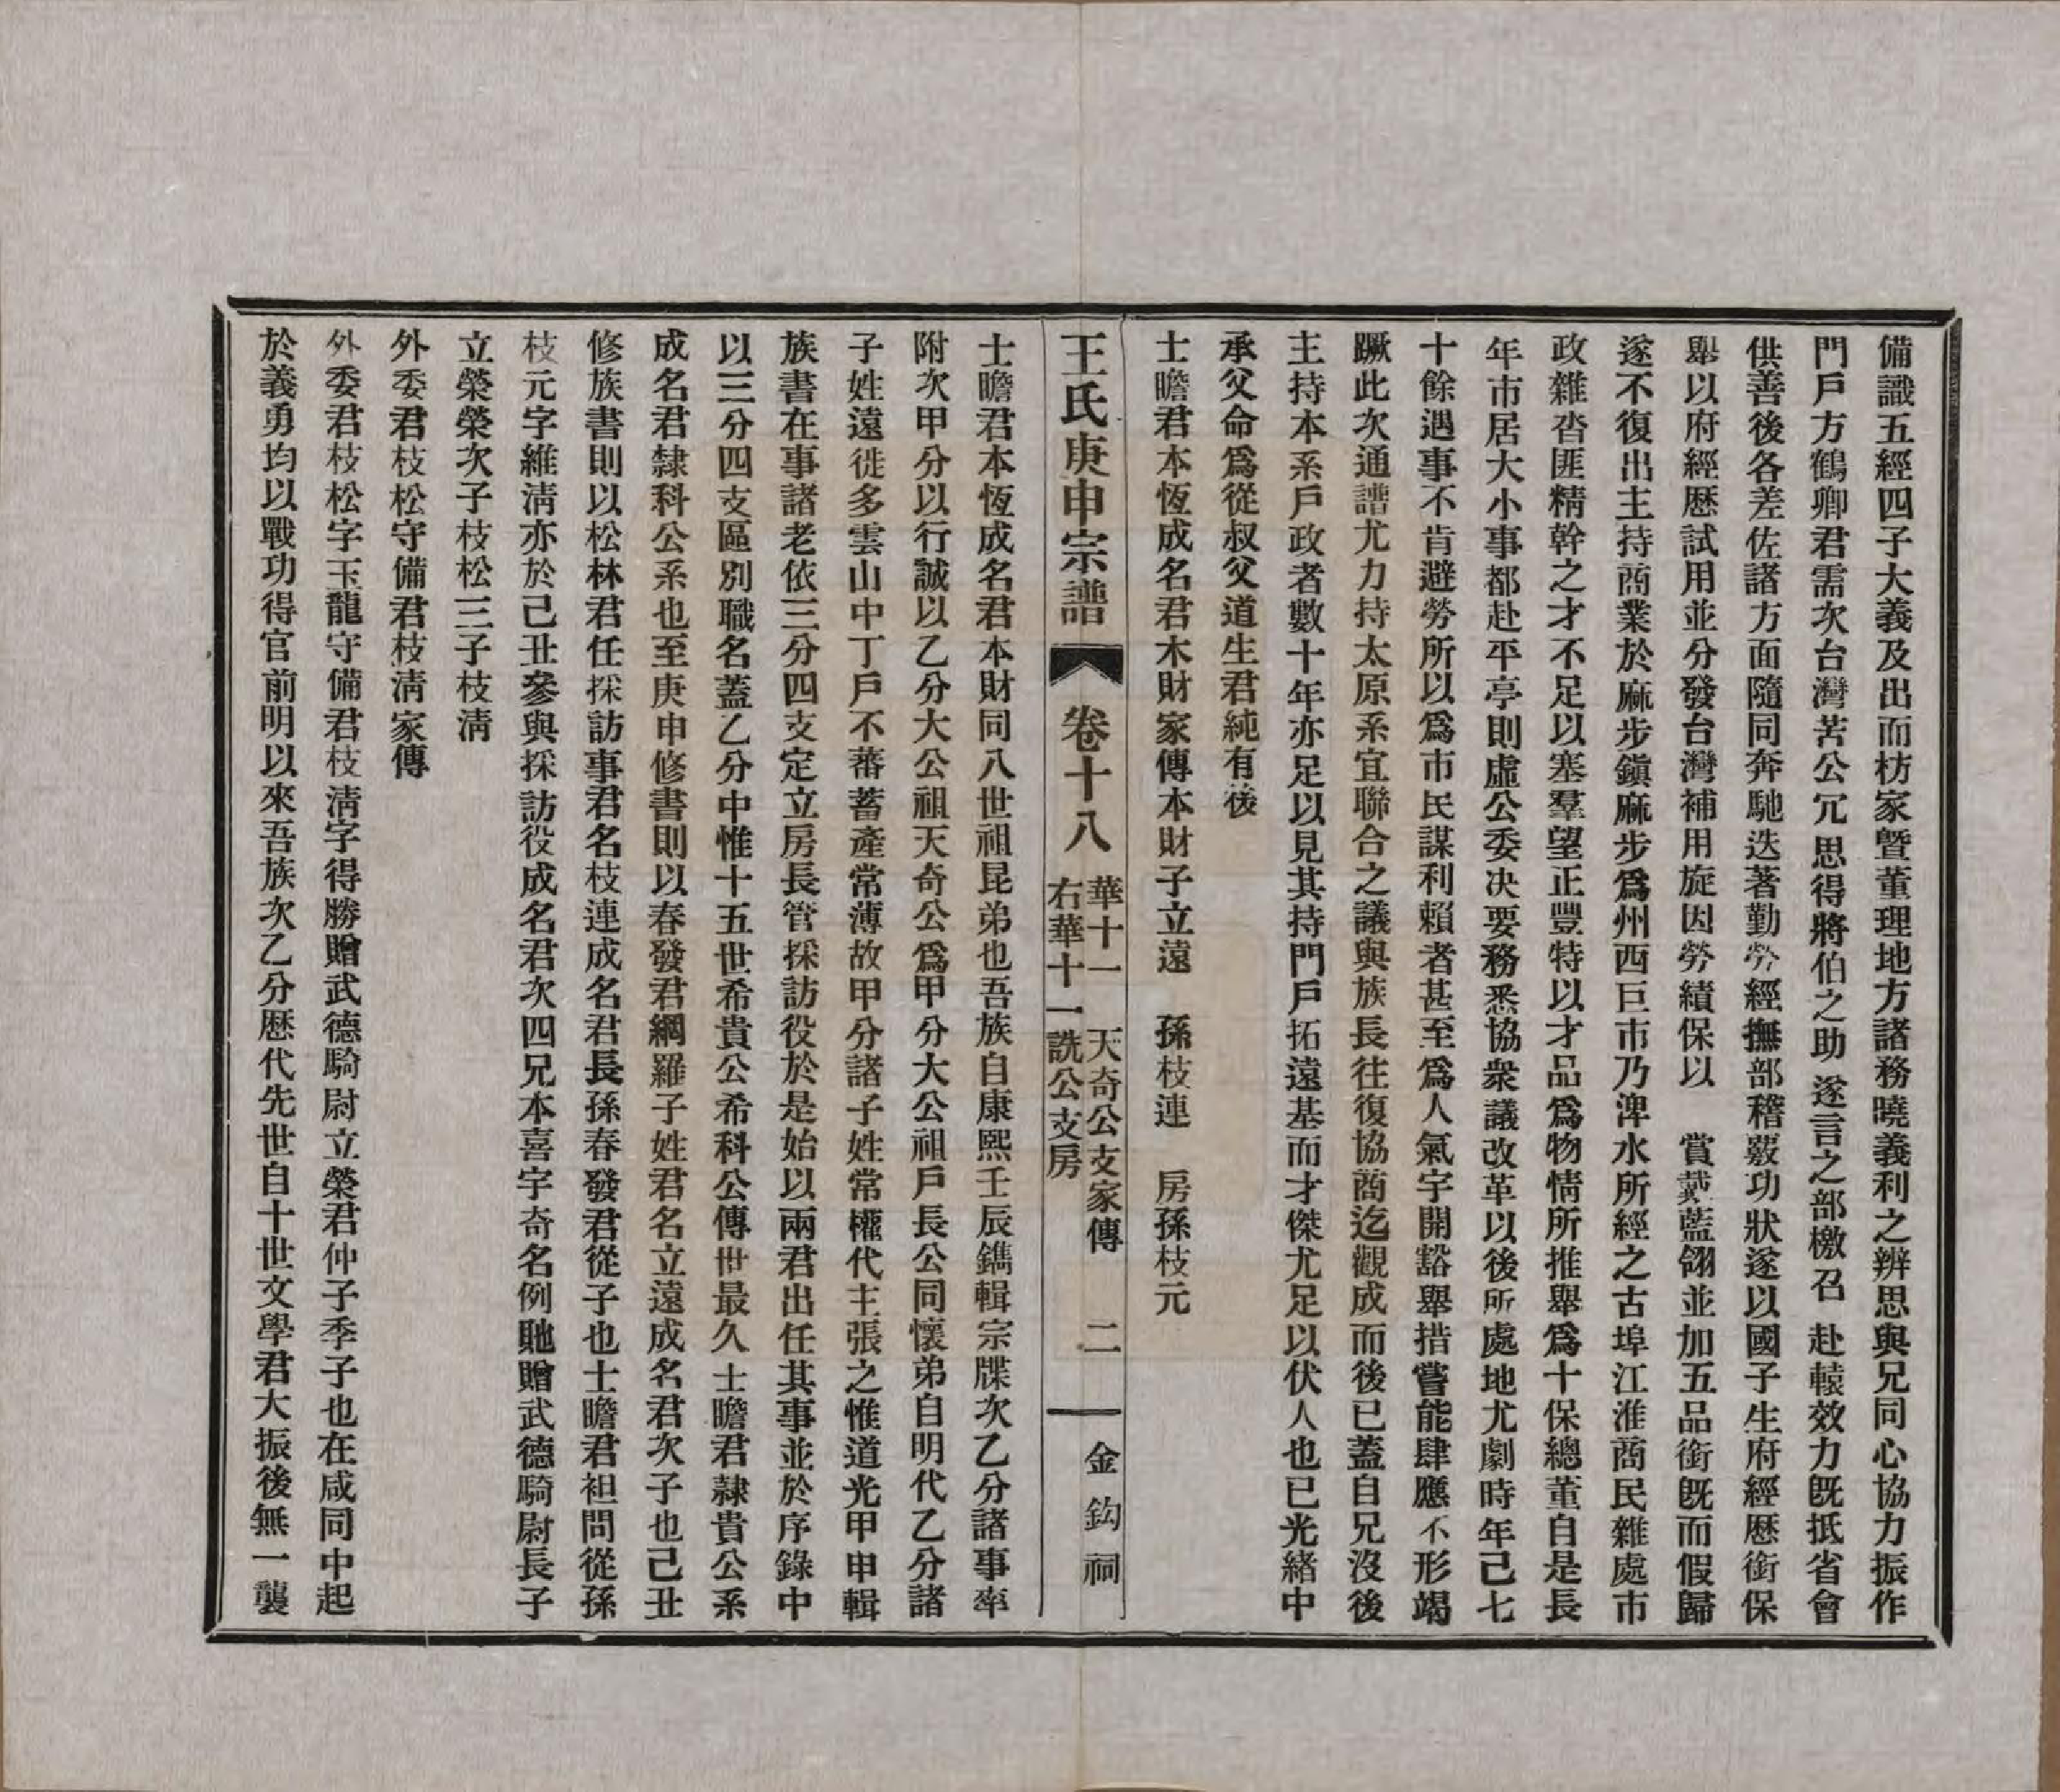 備識五經四子大義及出而枋家曁董理地方諸務曉義利之辨思與兄同心協力振作
門戶方鶴卿君需次台灣苦公冗思得將伯之助遂言之部檄召赴轅效力旣抵省會
供善後各差佐諸方面隨同奔馳迭著勤勞經撫部稽覈功狀遂以國子生府經歷銜保
舉以府經歷試用並分發台灣補用旋因勞績保以　賞戴藍翎並加五品銜旣而假歸
遂不復出主持商業於麻步鎭麻步爲州西巨市乃渒水所經之古埠江淮商民雜處市
政雜沓匪精幹之才不足以塞羣望正豐特以才品爲物情所推舉爲十保總董自是長
年市居大小事都赴平亭則虛公委决要務悉協衆議改革以後所處地尤劇時年己七
十餘遇事不肯避勞所以爲市民謀利賴者甚至爲人氣宇開豁舉措嘗能肆應不形竭
蹶此次通譜尤力持太原系宜聯合之議與族長往復協商迄觀成而後已蓋自兄沒後
主持本系戶政者數十年亦足以見其持門戶拓遠基而才傑尤足以伏人也已光緒中
承父命爲從叔父道生君純有後
士瞻君本恆成名君木財家傳本財子立遠　孫枝連　房孫枝元
王氏庚申宗譜　卷十八　華十一　天奇公支家傳　二　金鈎祠
右華十一詵公支房
士瞻君本恆成名君本財同八世祖昆弟也吾族自康熙壬辰鐫輯宗牒次乙分諸事率
附次甲分以行誠以乙分大公祖天奇公爲甲分大公祖戶長公同懷弟自明代乙分諸
子姓遠徙多雲山中丁戶不蕃蓄產常薄故甲分諸子姓常權代主張之惟道光甲申輯
族書在事諸老依三分四支定立房長管採訪役於是始以兩君出任其事並於序錄中
以三分四支區別職名蓋乙分中惟十五世希貴公希科公傳世最久士瞻君隸貴公系
成名君隸科公系也至庚申修書則以春發君綱羅子姓君名立遠成名君次子也己丑
修族書則以松林君任採訪事君名枝連成名君長孫春發君從子也士瞻君袒問從孫
枝元字維淸亦於己丑參與採訪役成名君次四兄本喜字奇名例貤贈武德騎尉長子
立榮榮次子枝松三子枝淸
外委君枝松守備君枝淸家傳
外委君枝松字玉龍守備君枝淸字得勝贈武德騎尉立榮君仲子季子也在咸同中起
於義勇均以戰功得官前明以來吾族次乙分歷代先世自十世文學君大振後無一襲